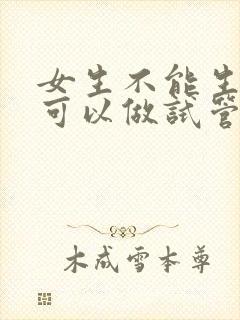 女生不能生
可以做试管
木成雪本尊